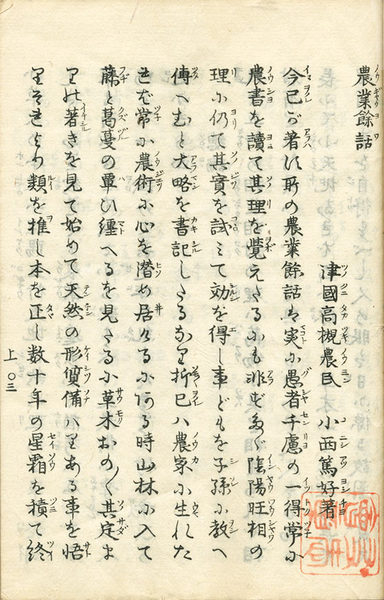 農業餘話
津國高槻農民 小西篤好著
今已が著は所の農業餘話は実に愚者千慮の一得常に
農書を讀て其理を覚えさるにも非ど多く陰陽旺相の
理に仍て其實を試ミて効を得し事どもを子孫に教へ
傳へむと大略を書記しさるなり抑己ハ農家に生れた
れば常に農術に心を潜め居
るに
る時山林に入て
藤と葛蔓の
ひ纏へるを見さるに草木おの〱其定ま
りに著きを見て始めて天然の形質備ハりある事を悟
りそれより類を推し本を正し数十年の星霜を積て終
上ノ三